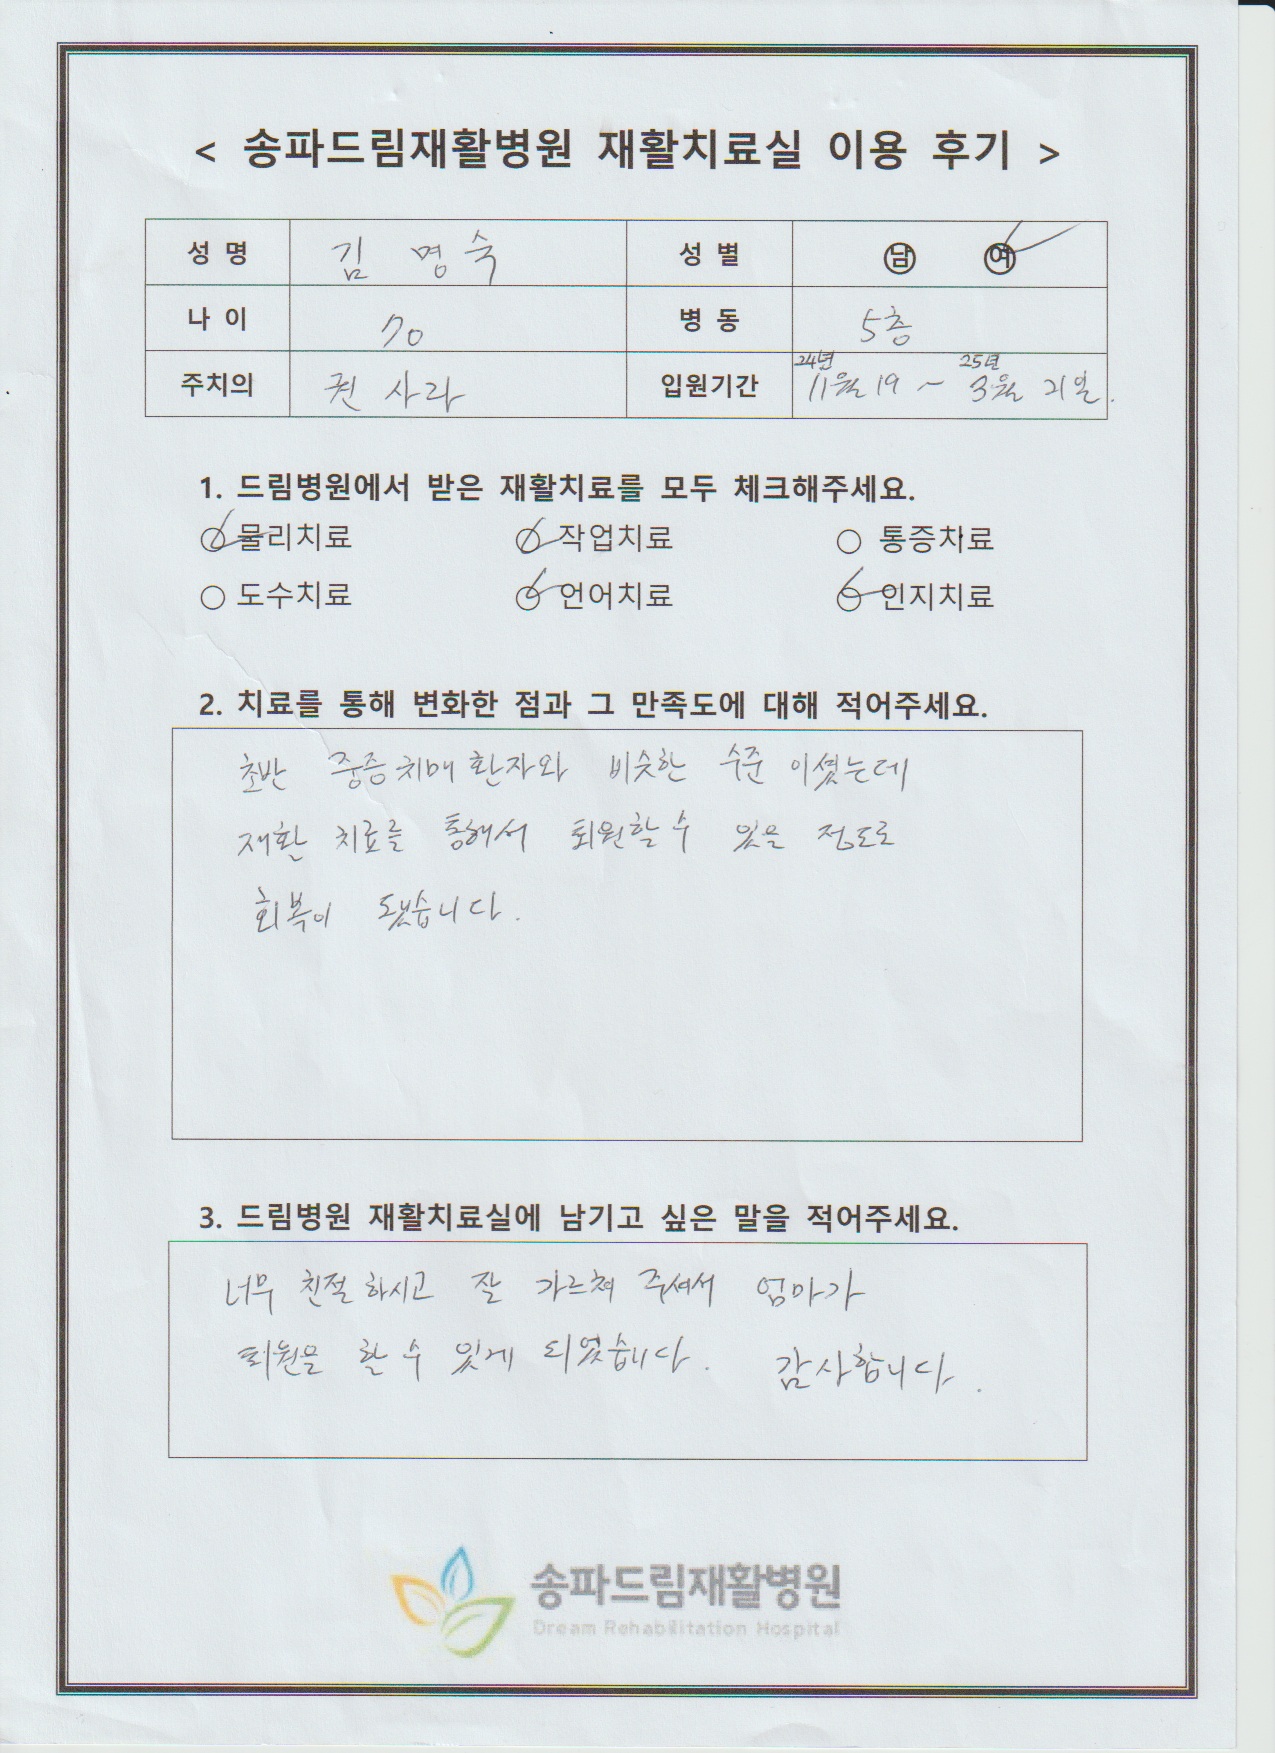 < 송파드림재활병원 재활치료실 이용 후기 >
성 명 김 명숙 성 별 남 여
나 이 70 병 동 5층
주치의 권 사라 입원기간 24년 11월 19 ~ 25년 3월 21일.
1. 드림병원에서 받은 재활치료를 모두 체크해주세요.
물리치료 작업치료 통증치료
도수치료 언어치료 인지치료
2. 치료를 통해 변화한 점과 그 만족도에 대해 적어주세요.
초반 중증치매 환자와 비슷한 수준 이셨는데
재활 치료를 통해서 퇴원할 수 있을 정도로
회복이 됐습니다.
3. 드림병원 재활치료실에 남기고 싶은 말을 적어주세요.
너무 친절하시고 잘 가르쳐 주셔서 엄마가
퇴원을 할 수 있게 되었습니다. 감사합니다.
송파드림재활병원
Dream Rehabilitation Hospital